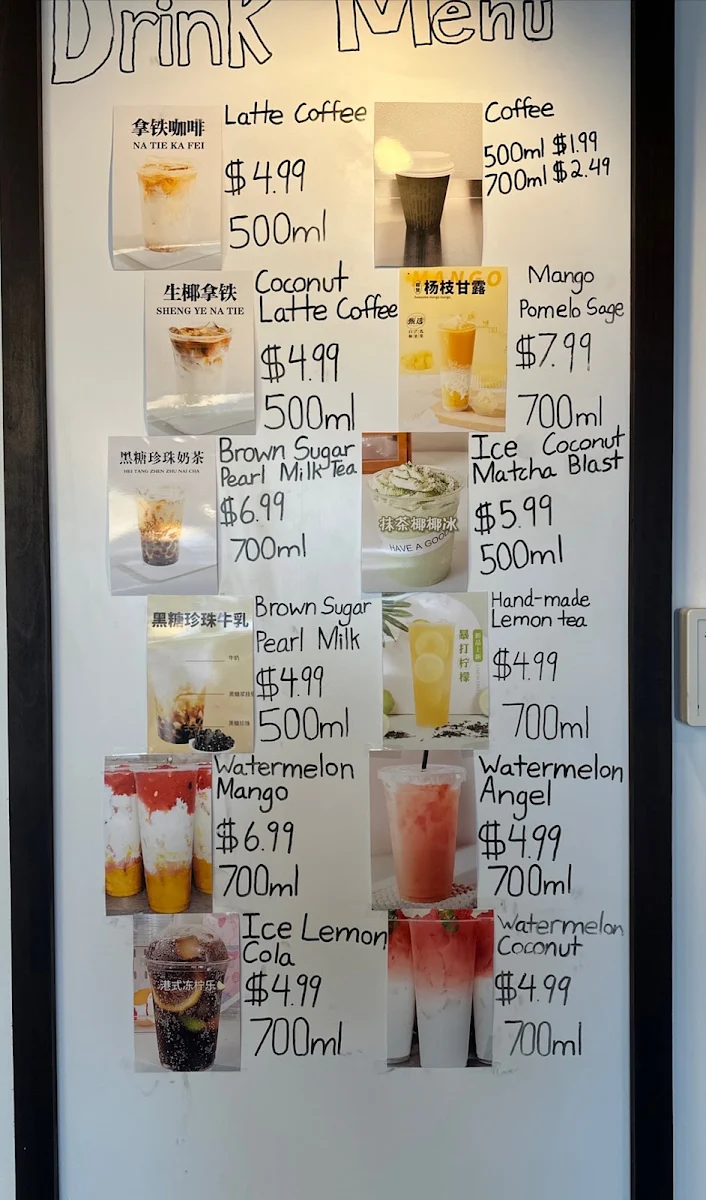 Drink Menu
拿铁咖啡
NA TIE KA FEI
Latte Coffee
$4.99
500ml
Coffee
500ml $1.99
700ml $2.49
生椰拿铁
SHENG YE NA TIE
Coconut
Latte Coffee
$4.99
500ml
MANGO
杨枝甘露
甄选
Mango
Pomelo Sago
$7.99
700ml
黑糖珍珠奶茶
HEI TANG ZHEN ZHU NAI CHA
Brown Sugar
Pearl Milk Tea
$6.99
700ml
抹茶椰椰冰
HAVE A GOOD
Ice Coconut
Matcha Blast
$5.99
500ml
黑糖珍珠牛乳
牛奶
黑糖珍珠
Brown Sugar
Pearl Milk
$4.99
500ml
暴打柠檬
Hand-made
Lemon tea
$4.99
700ml
Watermelon
Mango
$6.99
700ml
Watermelon
Angel
$4.99
700ml
港式冻柠乐
Ice Lemon
Cola
$4.99
700ml
Watermelon
Coconut
$4.99
700ml